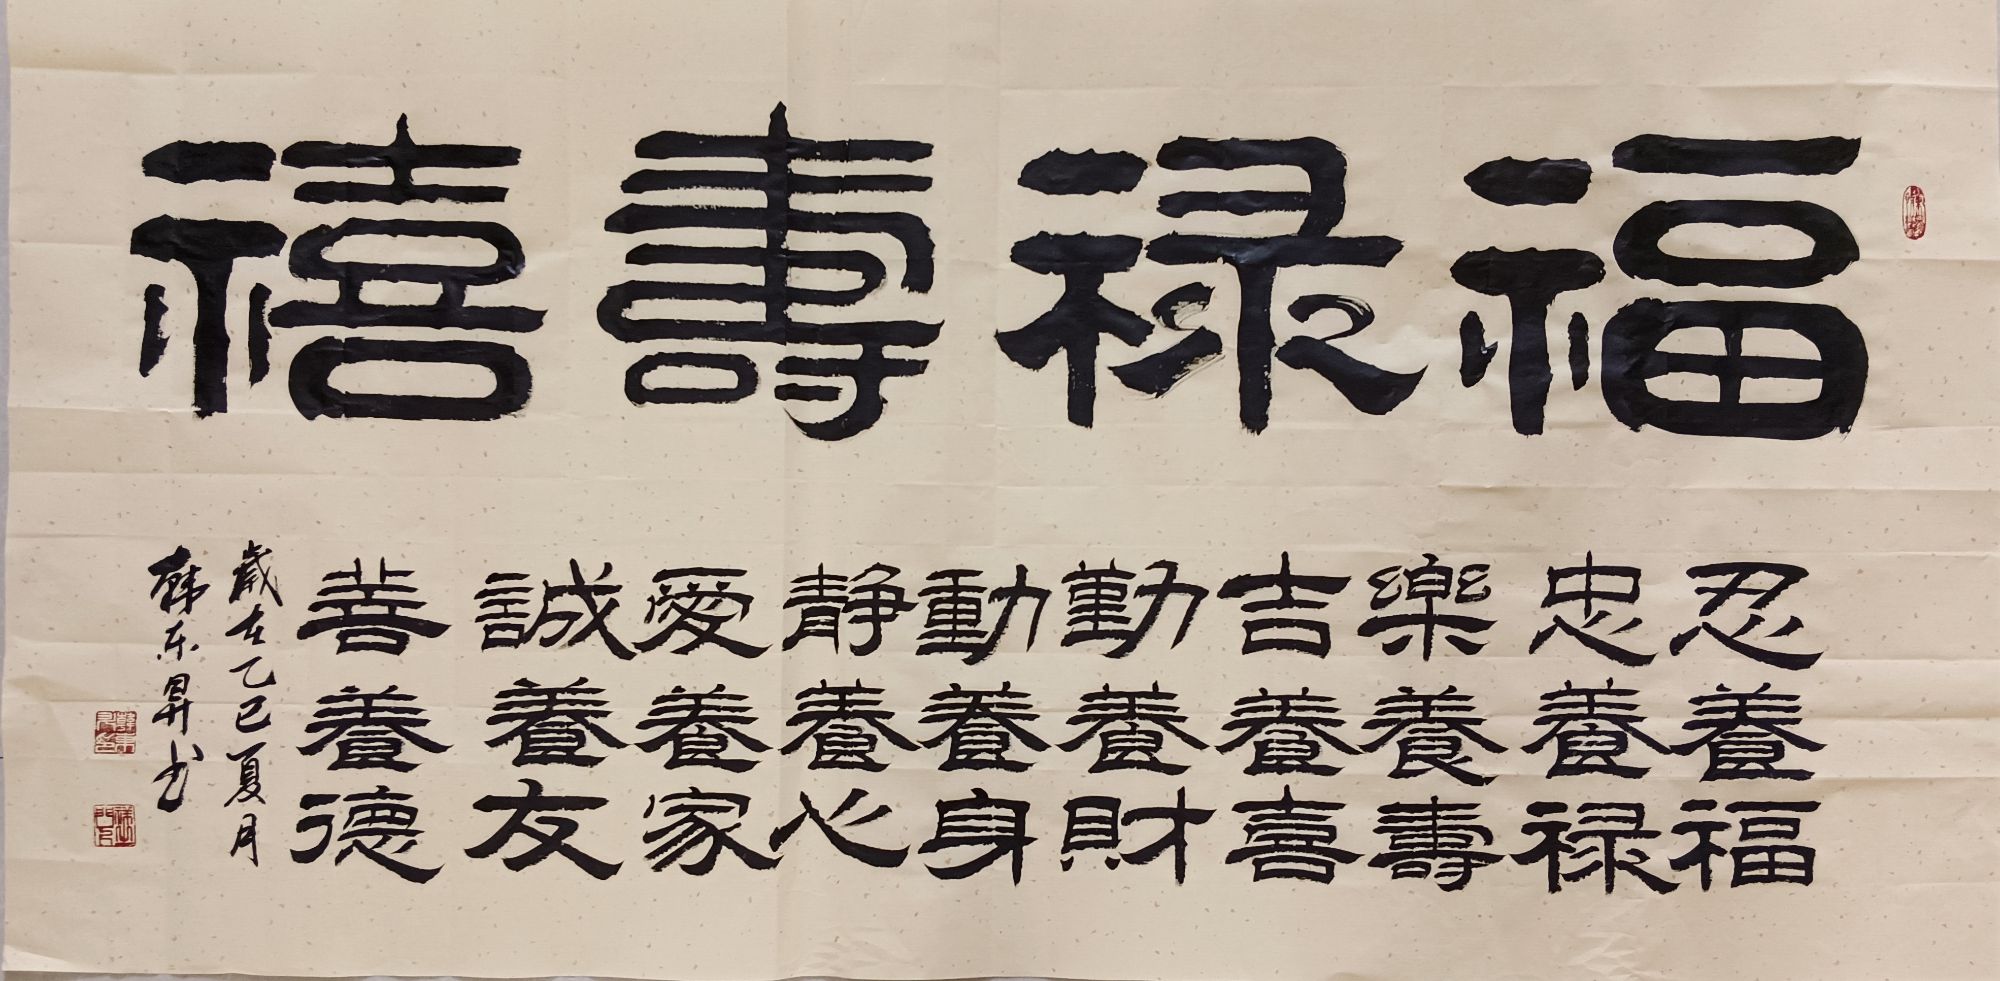 福禄壽禧
忍養福
忠養禄
樂養壽
吉養喜
勤養財
動養身
静養心
愛養家
誠養友
善養德
歲在乙巳夏月
韩东昇书